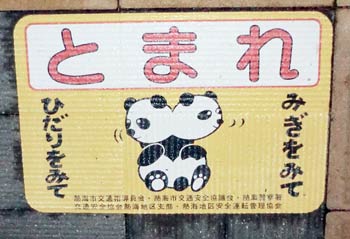 とまれ
みぎをみて
ひだりをみて
熱海市交通指導員会・熱海市交通安全協議会・熱海警察署
交通安全協会熱海地区支部・熱海地区安全運転管理協会